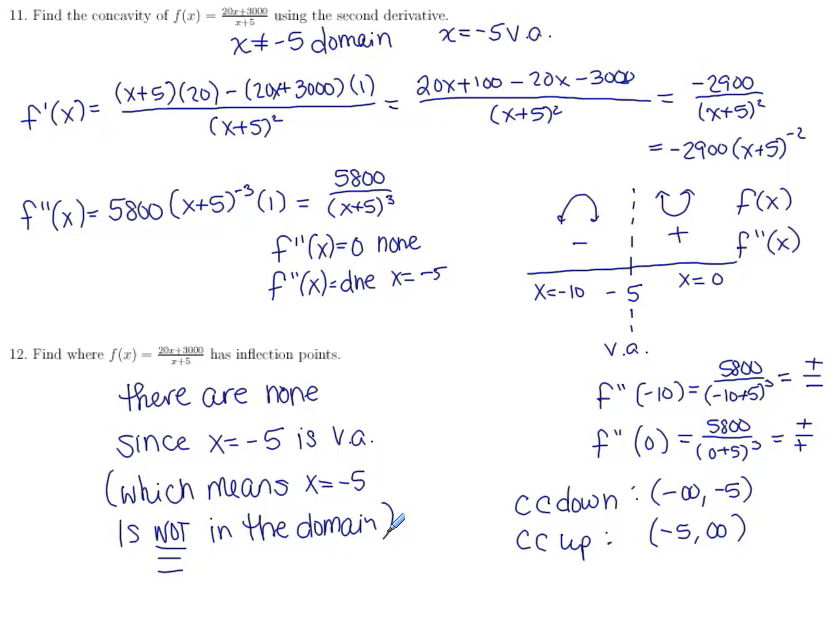 11. Find the concavity of f(x) = (20x+3000)/(x+5) using the second derivative.
x ≠ -5 domain x = -5 v.a.
f'(x) = ((x+5)(20) - (20x+3000)(1))/(x+5)² = (20x+100-20x-3000)/(x+5)² = -2900/(x+5)²
= -2900(x+5)⁻²
f''(x) = 5800(x+5)⁻³(1) = 5800/(x+5)³
f''(x)=0 none
f''(x)=dne x=-5
f(x)
- + f''(x)
x=-10 -5 x=0
v.a.
12. Find where f(x) = (20x+3000)/(x+5) has inflection points.
there are none
since x=-5 is v.a.
(which means x=-5
is NOT in the domain)
f''(-10) = 5800/(-10+5)³ = +/-
f''(0) = 5800/(0+5)³ = +/+
cc down : (-∞, -5)
cc up : (-5, ∞)